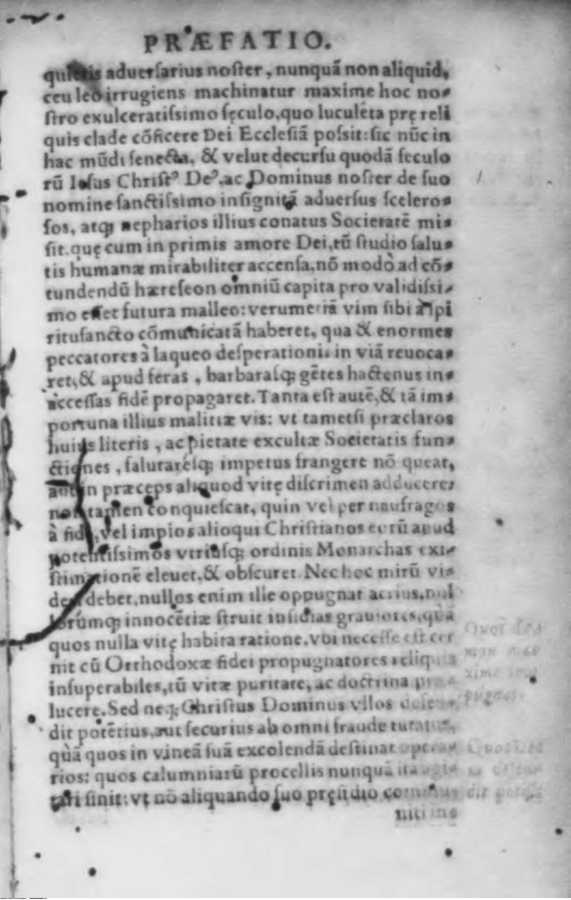 PRÆFATIO.
quietis aduersarius noster, nunquā non aliquid,
ceu leo irrugiens machinatur maxime hoc no-
stro exulceratissimo sęculo, quo luculēta prę reli
quis clade cōficere Dei Ecclesiā possit: sic nūc in
hac mūdi senecta, & velut decursu quodā seculo
rū Iesus Christꝰ Deꝰ, ac Dominus noster de suo
nomine sanctissimo insignitā aduersus scelero-
sos, atq; nepharios illius conatus Societatē mi-
sit. quę cum in primis amore Dei, tū studio salu-
tis humanæ mirabiliter accensa, nō modò ad cō-
tundendū hæreseon omniū capita pro validissi-
mo esset futura malleo: verumetiā vim sibi à spi
ritusancto cōmunicatā haberet, qua & enormes
peccatores à laqueo desperationis in viā reuoca-
ret, & apud feras, barbarasq; gētes hactenus in-
accessas fidē propagaret. Tanta est autē, & tā im-
portuna illius malitiæ vis: vt tametsi præclaros
huius literis, ac pietate excultæ Societatis fun-
ctiones, salutaresq; impetus frangere nō queat,
aut in præceps aliquod vitę discrimen adducere:
non tamen conquiescat, quin vel per naufragos
à fide, vel impios alioqui Christianos eorū apud
potentissimos vtriusq; ordinis Monarchas exi-
stimationē eleuet, & obscuret. Nec hoc mirū vi-
deri debet, nullos enim ille oppugnat acrius, nul
lorūmq; innocētiæ struit insidias grauiores, quā
quos nulla vitę habita ratione, vbi necesse est cer
nit cū Orthodoxæ fidei propugnatores reliquis
insuperabiles, tū vitæ puritate, ac doctrina præ-
lucere. Sed neq; Christus Dominus vllos defen-
dit potētius, aut securius ab omni fraude tutatur,
quā quos in vineā suā excolendā destinat opera-
rios: quos calumniarū procellis nunquā ita agi-
tari sinit: vt nō aliquando suo pręsidio cominus
niti in-